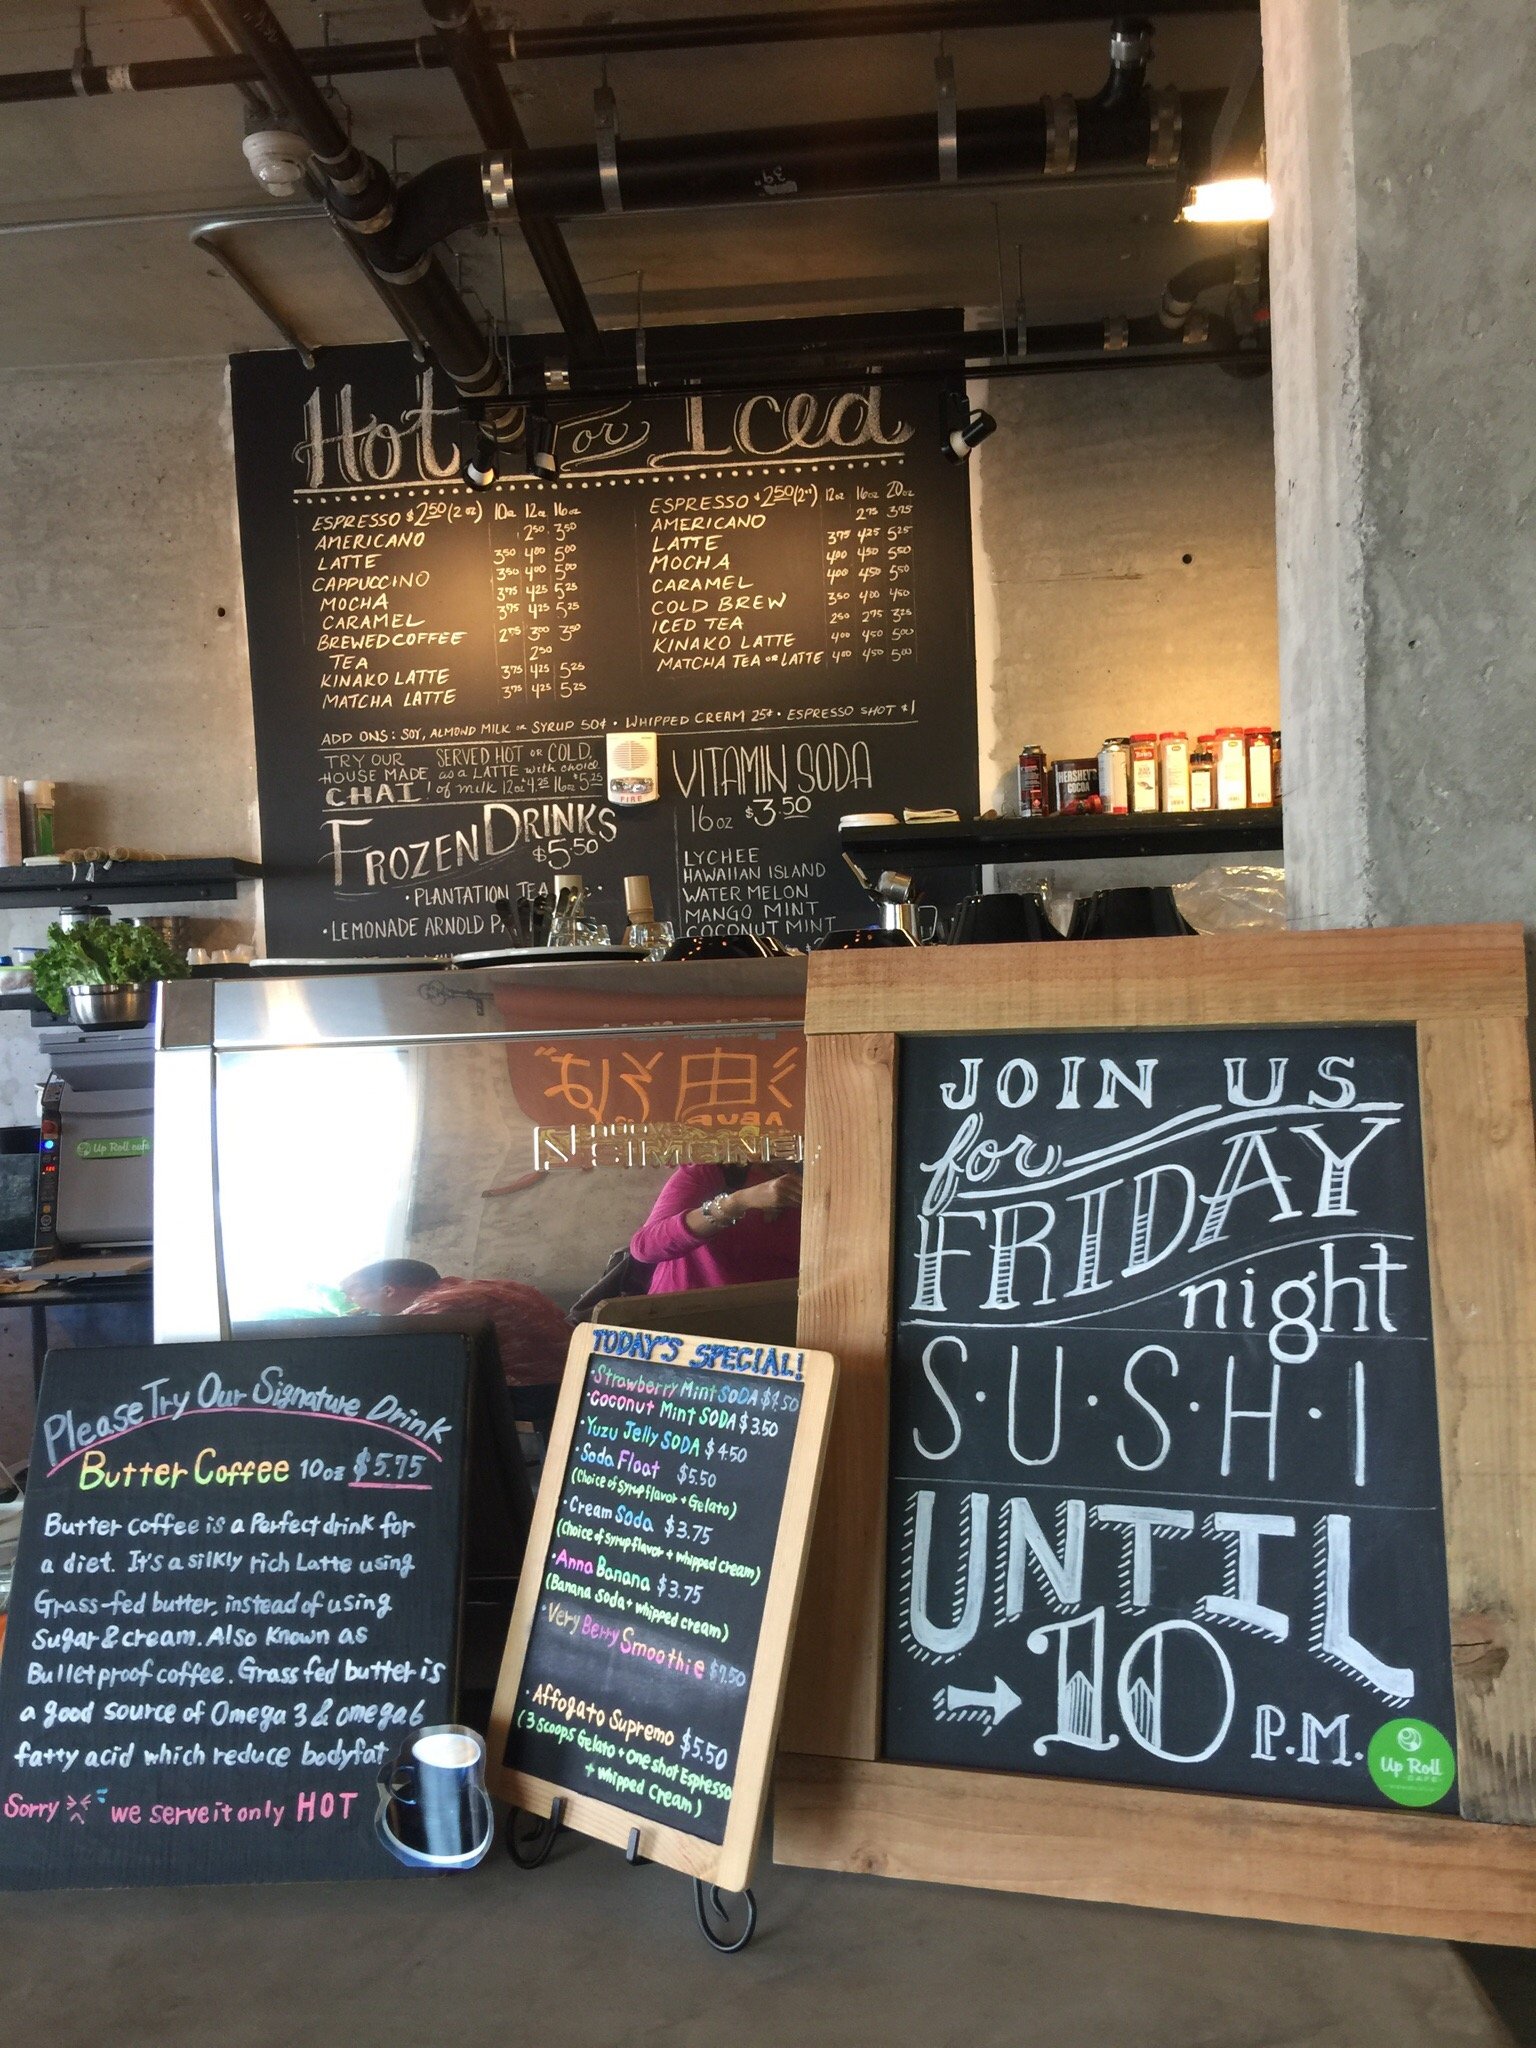 Hot or Iced
ESPRESSO $2.50 (2 oz) 10oz 12oz 16oz
AMERICANO 2.50 3.50
LATTE 3.50 4.00 5.00
CAPPUCCINO 3.50 4.00 5.00
MOCHA 3.75 4.25 5.25
CARAMEL 3.75 4.25 5.25
BREWED COFFEE 2.75 3.00 3.50
TEA 2.50
KINAKO LATTE 3.75 4.25 5.25
MATCHA LATTE 3.75 4.25 5.25
ESPRESSO $2.50 (2oz) 12oz 16oz 20oz
AMERICANO 2.75 3.75
LATTE 3.75 4.25 5.25
MOCHA 4.00 4.50 5.50
CARAMEL 4.00 4.50 5.50
COLD BREW 3.50 4.00 4.50
ICED TEA 2.50 2.75 3.25
KINAKO LATTE 4.00 4.50 5.00
MATCHA TEA or LATTE 4.00 4.50 5.00
ADD ONS: SOY, ALMOND MILK or SYRUP 50¢ • WHIPPED CREAM 25¢ • ESPRESSO SHOT $1
TRY OUR
HOUSE MADE
CHAI!
SERVED HOT or COLD,
as a LATTE with choice
of milk 12oz $4.25 16oz $5.25
FIRE
FROZEN DRINKS
$5.50
• PLANTATION TEA
• LEMONADE ARNOLD P
VITAMIN SODA
16oz $3.50
LYCHEE
HAWAIIAN ISLAND
WATER MELON
MANGO MINT
COCONUT MINT
HERSHEY'S
COCOA
Up Roll cafe
Please Try Our Signature Drink
Butter Coffee 10oz $5.75
Butter coffee is a Perfect drink for
a diet. It's a silkly rich Latte using
Grass-fed butter, instead of using
sugar & cream. Also known as
Bulletproof coffee. Grass fed butter is
a good source of Omega 3 & omega 6
fatty acid which reduce bodyfat
Sorry we serve it only HOT
TODAY'S SPECIAL!
• Strawberry Mint SODA $4.50
• Coconut Mint SODA $3.50
• Yuzu Jelly SODA $4.50
• Soda Float $5.50
(Choice of syrup flavor + Gelato)
• Cream Soda $3.75
(Choice of syrup flavor + whipped cream)
• Anna Banana $3.75
(Banana Soda + whipped cream)
• Very Berry Smoothie $7.50
• Affogato Supremo $5.50
(3 scoops Gelato + one shot Espresso
+ whipped Cream)
JOIN US
for
FRIDAY
night
S•U•S•H•I
UNTIL
10 P.M.
Up Roll
CAFE